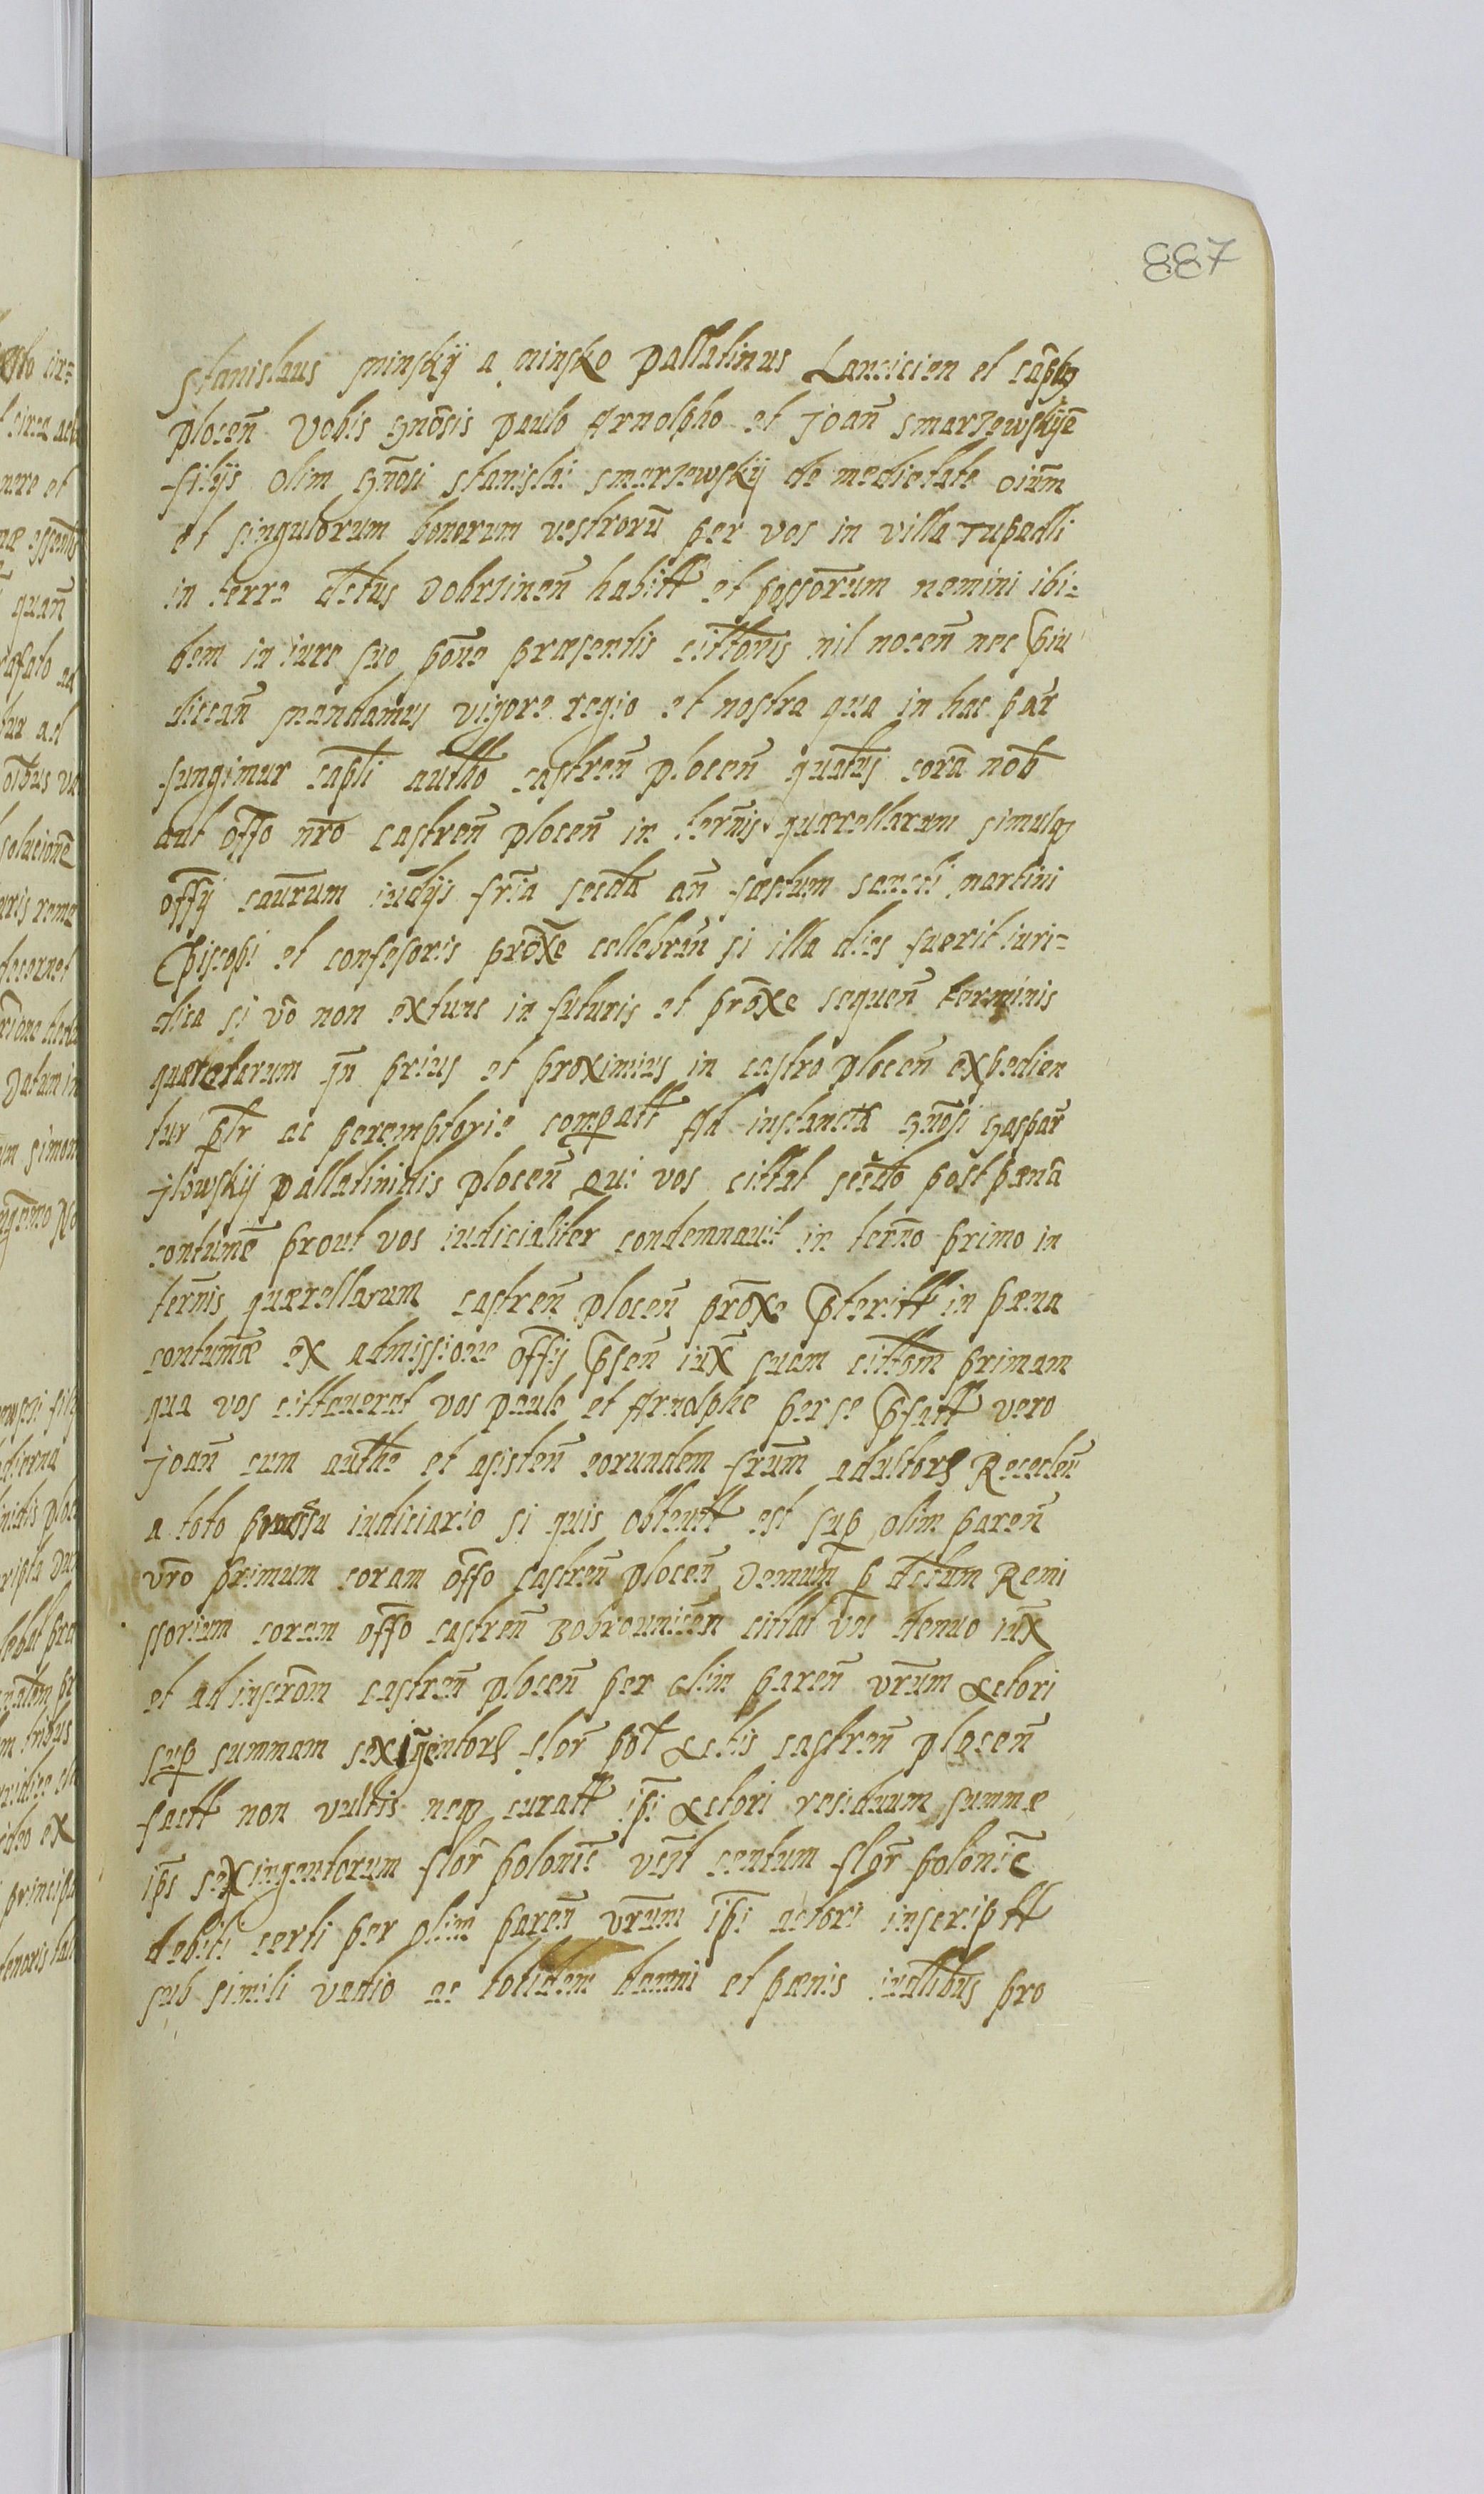 887
Stanislaus Minskÿ a Minsko Pallatinus Lancicien et Capłus
plocen̄ Vobis gnōsis paulo Arnolpho et Joan̄ Smarzewskÿē
filÿs olim gn̄osi Stanislai Smarzewskÿ de medietate oiūm
et singulorum bonorum vestrorū per vos in villa Tupadli
in terra dctus Dobrzinen̄ habitt et possōrum nemini ibi=
dem in iure suo pōne præsentis cittōnis nil nocen̄ nec p̄iu
dican̄ Mandamus vigore regio et nostra qua in hac par̄
fungimur capłi autho castren̄ plocen̄ quatus corā nob̄
aut offo nr̄o Castren̄ plocen̄ in ter̄nis quærellarum simulq
offÿ caūrum iudÿs fr̄ia secda an̄ fæstum Sancti Martini
Episcopi et confesoris prōxe cellebran̄ si illa dies fuerit iuri=
dica si vō non extunc in futuris et prōxe sequen̄ terminis
quærelarum qn̄ prius et proximius in castro plocen̄ expedien
tur pt̄r ac peremptorie comparatt Ad instanciā gn̄osi Gaspar̄
Jlowskÿ pallatinidis plocen̄ Qui vos cittat secūdo post pænā
contumē prout vos iudicialiter condemnauit in ter̄no primo in
ter̄nis quærellarum castren̄ plocen̄ prōxe p̄teritt in pæna
contumæ ex admissione offÿ p̄sen̄ iux̄ suam cittōm primam
qua vos cittauerat vos paule et Arnolphe per se p̄fatt vero
Joan̄ cum autho et asisten̄ eorundem frūm adultorꝝ Receden̄
a toto processu iudiciario si quis obtentt est sup olim paren̄
vr̄o primum coram offo castren̄ plocen̄ Demum p dctum Remi
ssorium coram offo castren̄ Bobrounicen cittat vos denuo iux̄
et ad inscrōm castren̄ plocen̄ per olim paren̄ vr̄um Actori
sup summam sexingentorꝝ flor̄ pol̄ Actis castren̄ plocen̄
factt non vultis neq curatt ipī Actori residuum summæ
ipīs sexingentorum flor̄ polonic̄ vid̄t centum flor̄ polonic̄
debiti certi per olim paren̄ vr̄um ipī actori inscriptt
sub simili vadio ac totidem damni et pænis iuālibus pro